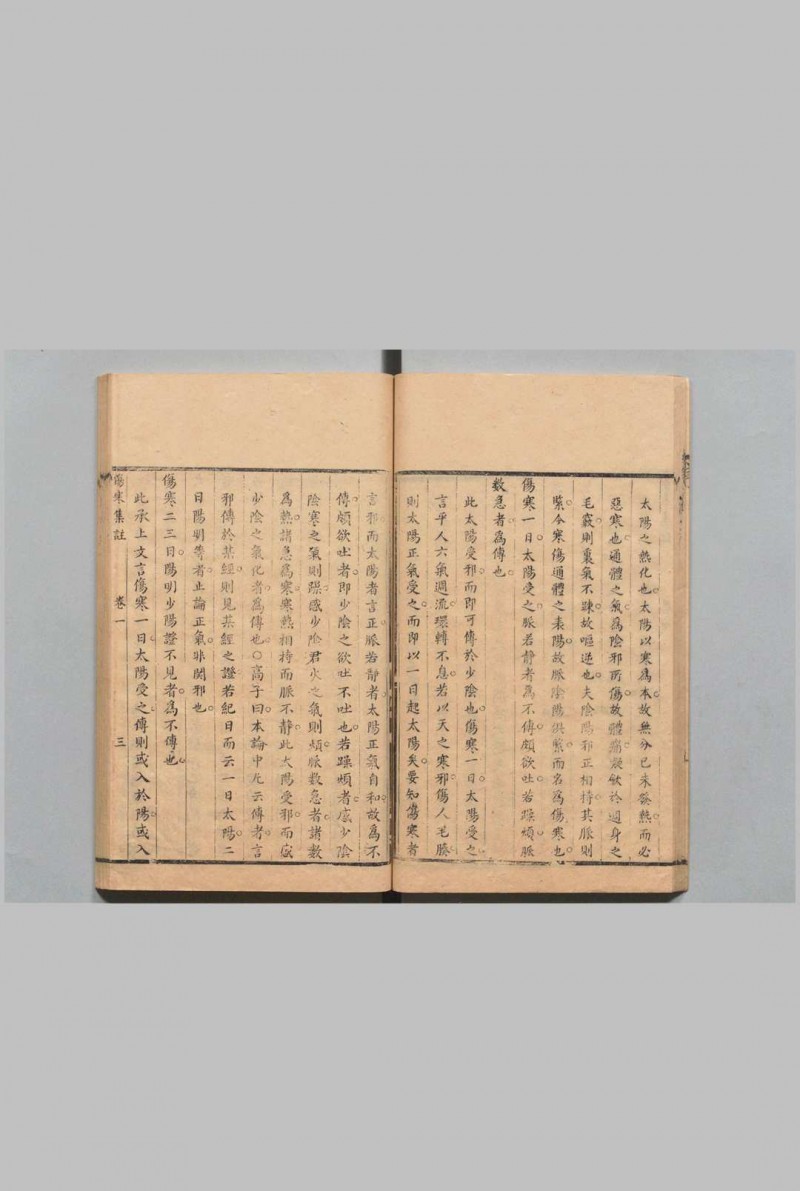 太陽之熱化也太陽以寒為本故無分已未發熱而必
惡寒也通體之氣為陰邪所傷故體痛凝斂於週身之
毛竅則裏氣不疎故嘔逆也夫陰陽邪正相持其脈則
緊今寒傷通體之表陽故脈陰陽俱緊而名為傷寒也
傷寒一日太陽受之脈若靜者為不傳頗欲吐若躁煩脈
數急者為傳也
此太陽受邪而即可傳於少陰也傷寒一日太陽受之
言乎人六氣週流環轉不息若以天之寒邪傷人毛腠
則太陽正氣受之而即以一日起太陽矣要知傷寒者
言邪而太陽者言正脈若靜者太陽正氣自和故為不
傳頗欲吐者即少陰之欲吐不吐也若躁煩者感少陰
陰寒之氣則躁感少陰君火之氣則煩脈數急者諸數
為熱諸急為寒寒熱相持而脈不靜此太陽受邪而感
少陰之氣化者為傳也○高子曰本論中凡云傳者言
邪傳於某經則見某經之證若紀日而云一日太陽二
日陽明等者止論正氣非關邪也
傷寒二三日陽明少陽證不見者為不傳也
此承上文言傷寒一日太陽受之傳則或入於陽或入
傷寒集註 卷一 三